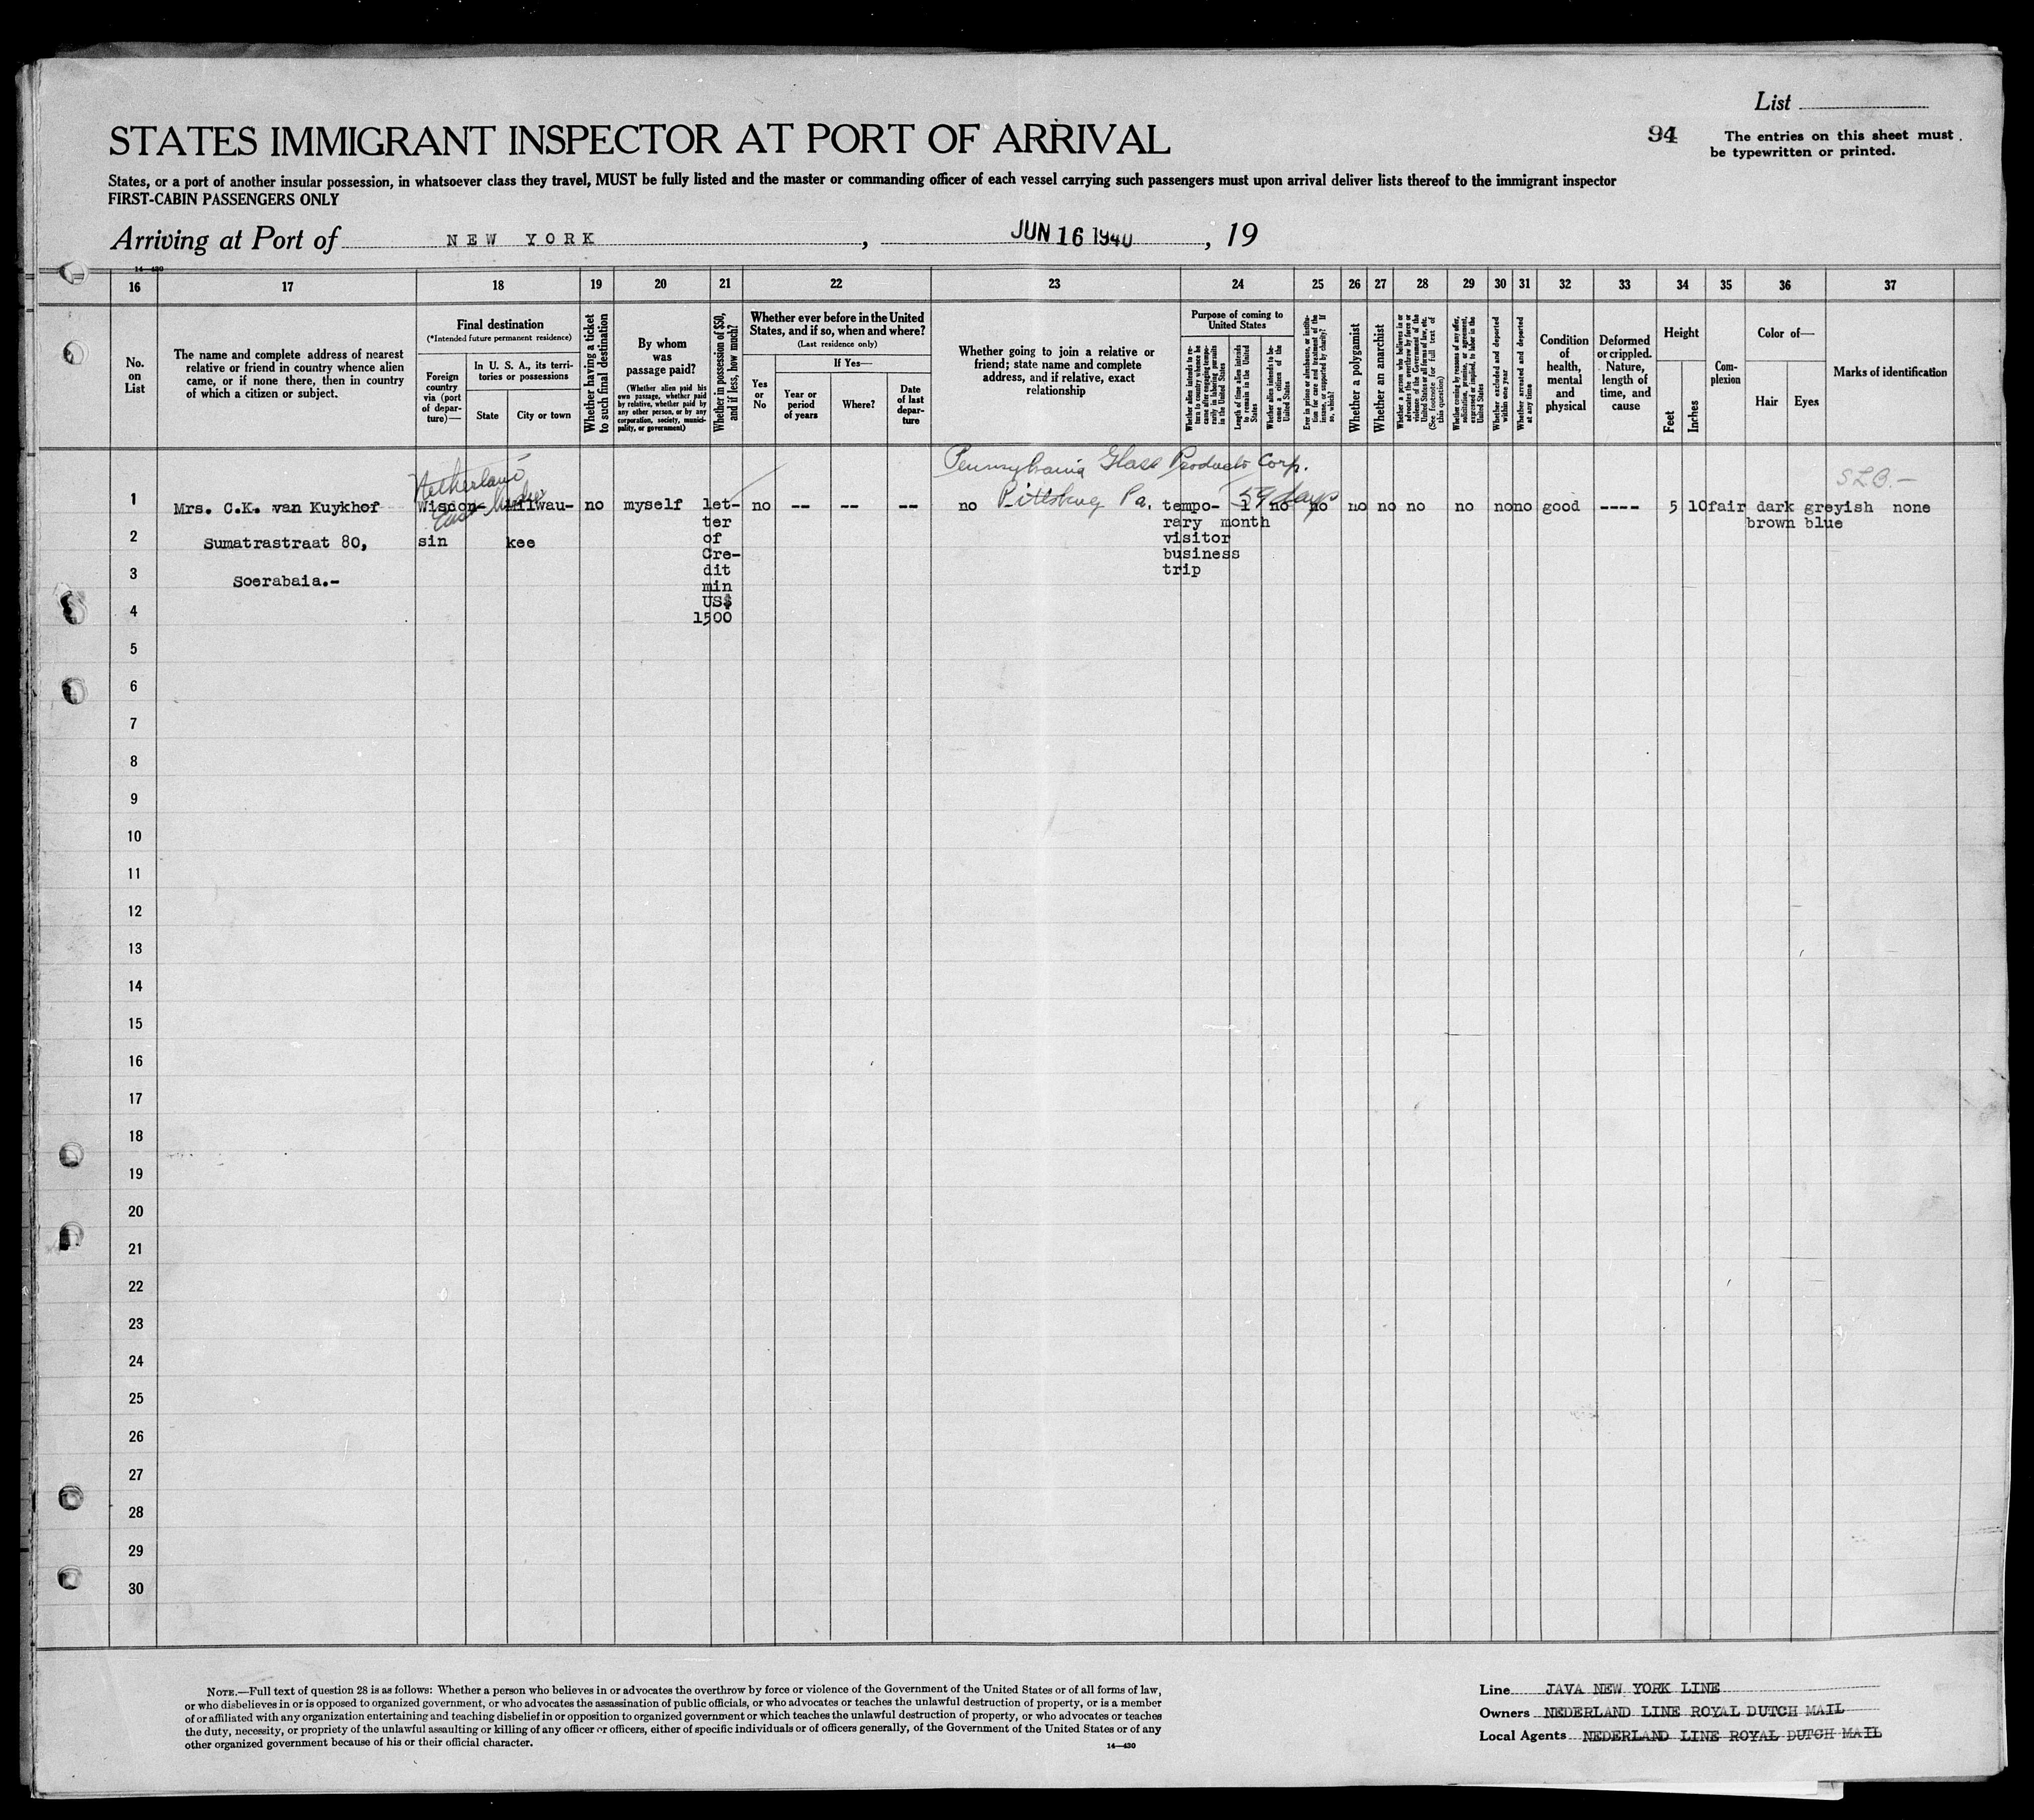 List
STATES IMMIGRANT INSPECTOR AT PORT OF ARRIVAL
94
The entries on this sheet must
be typewritten or printed.
States, or a port of another insular possession, in whatsoever class they travel, MUST be fully listed and the master or commanding officer of each vessel carrying such passengers must upon arrival deliver lists thereof to the immigrant inspector
FIRST-CABIN PASSENGERS ONLY
Arriving at Port of NEW YORK, JUN 16 1940, 19
14—430
16 17 18 19 20 21 22 23 24 25 26 27 28 29 30 31 32 33 34 35 36 37
No.
on
List
The name and complete address of nearest
relative or friend in country whence alien
came, or if none there, then in country
of which a citizen or subject.
Final destination
(*Intended future permanent residence)
Foreign
country
via (port
of depar-
ture)—
In U. S. A., its terri-
tories or possessions
State City or town
Whether having a ticket
to such final destination
By whom
was
passage paid?
(Whether alien paid his
own passage, whether paid
by relative, whether paid by
any other person, or by any
corporation, society, munici-
pality, or government)
Whether in possession of $50,
and if less, how much?
Whether ever before in the United
States, and if so, when and where?
(Last residence only)
Yes
or
No
If Yes—
Year or
period
of years
Where?
Date
of last
depar-
ture
Whether going to join a relative or
friend; state name and complete
address, and if relative, exact
relationship
Purpose of coming to
United States
Whether alien intends to re-
turn to country whence he
came after engaging tempo-
rarily in laboring pursuits
in the United States
Length of time alien intends
to remain in the United
States
Whether alien intends to be-
come a citizen of the
United States
Ever in prison or almshouse, or institu-
tion for care and treatment of the
insane, or supported by charity? If
so, which?
Whether a polygamist
Whether an anarchist
Whether a person who believes in or
advocates the overthrow by force or
violence of the Government of the
United States or all forms of law, etc.
(See footnote for full text of
this question)
Whether coming by reason of any offer,
solicitation, promise, or agreement,
expressed or implied, to labor in the
United States
Whether excluded and deported
within one year
Whether arrested and deported
at any time
Condition
of
health,
mental
and
physical
Deformed
or crippled.
Nature,
length of
time, and
cause
Height
Feet Inches
Com-
plexion
Color of—
Hair Eyes
Marks of identification
Pennsylvania Glass Products Corp.
Netherland
East Indies
Pittsburg Pa.
59 days
S L B.—
1 Mrs. C.K. van Kuykhof Wiscon- Milwau- no myself let- no -- -- -- no tempo- 1 no no no no no no no no good ---- 5 10 fair dark greyish none
ter rary month brown blue
2 Sumatrastraat 80, sin kee of visitor
Cre- business
3 Soerabaia.- dit trip
min
US$
4 1500
5
6
7
8
9
10
11
12
13
14
15
16
17
18
19
20
21
22
23
24
25
26
27
28
29
30
NOTE.—Full text of question 28 is as follows: Whether a person who believes in or advocates the overthrow by force or violence of the Government of the United States or of all forms of law,
or who disbelieves in or is opposed to organized government, or who advocates the assassination of public officials, or who advocates or teaches the unlawful destruction of property, or is a member
of or affiliated with any organization entertaining and teaching disbelief in or opposition to organized government or which teaches the unlawful destruction of property, or who advocates or teaches
the duty, necessity, or propriety of the unlawful assaulting or killing of any officer or officers, either of specific individuals or of officers generally, of the Government of the United States or of any
other organized government because of his or their official character.
14—430
Line JAVA NEW YORK LINE
Owners NEDERLAND LINE ROYAL DUTCH MAIL
Local Agents NEDERLAND LINE ROYAL DUTCH MAIL